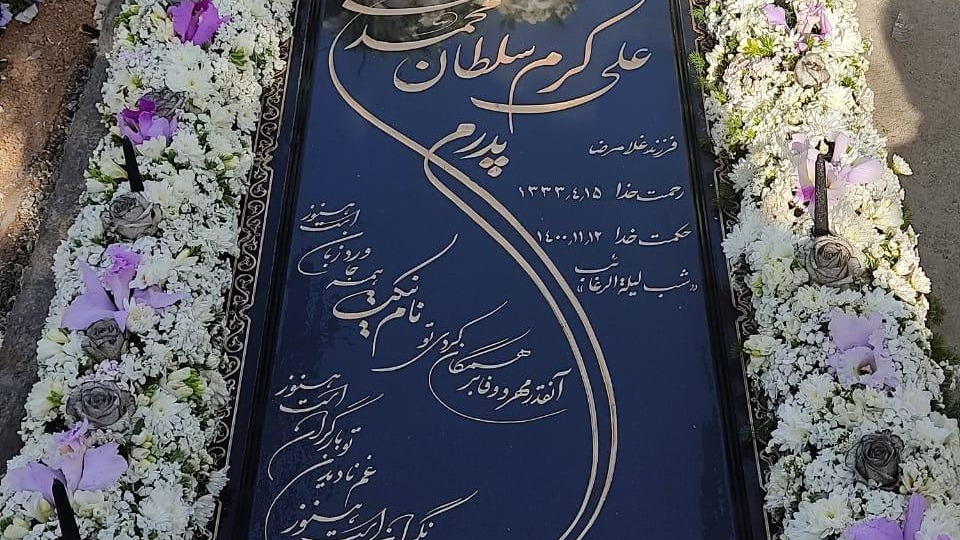 محمد
علی کرم سلطان
پدرم
فرزند غلامرضا
رحمت خدا ۱۳۳۳٫۴٫۱۵
حکمت خدا ۱۴۰۰٫۱۱٫۱۲
«شب لیلة الرغائب»
آنقدر مهر و وفا بر همگان کردی تو
نام نیکت همه جا ورد زبان است هنوز
غم نادیدن تو بار گران است هنوز
است هنوز